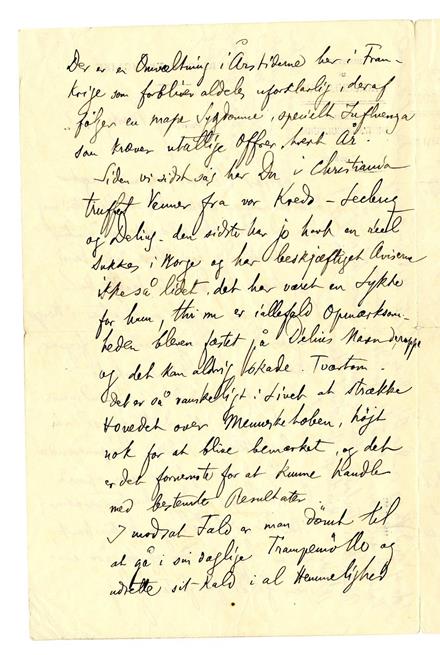 Der er en Omvæltning i Årstiderne her i Fran-
krige som forbliver aldeles uforklarlig, deraf
følger en masse Sygdomme, specielt Influenza
som kræver utallige Offrer, hvert År.
Siden vi sidst såg har De i Christiania
truffet Venner fra vor Kreds - Leclerq
og Delius - den sidste har jo havt en reel
Sukkes i Norge og har beskjæftiget Aviserne
ikke så lidet. det har været en Lykke
for ham, thi nu er iallefald Opmærksom-
heden bleven fæstet på Delius Navn deroppe
og det kan aldrig skade. Tværtom.
det er så vanskeligt i Livet at strække
Hovedet over Menneskehoben, højt
nok for at blive bemærket, og det
er det fornemste for at kunne handle
med bestemte Resultater
I modsat Fald er man dömt til
at gå i sin daglige Trampemölle og
udrette sit Kald i al Hemmelighed